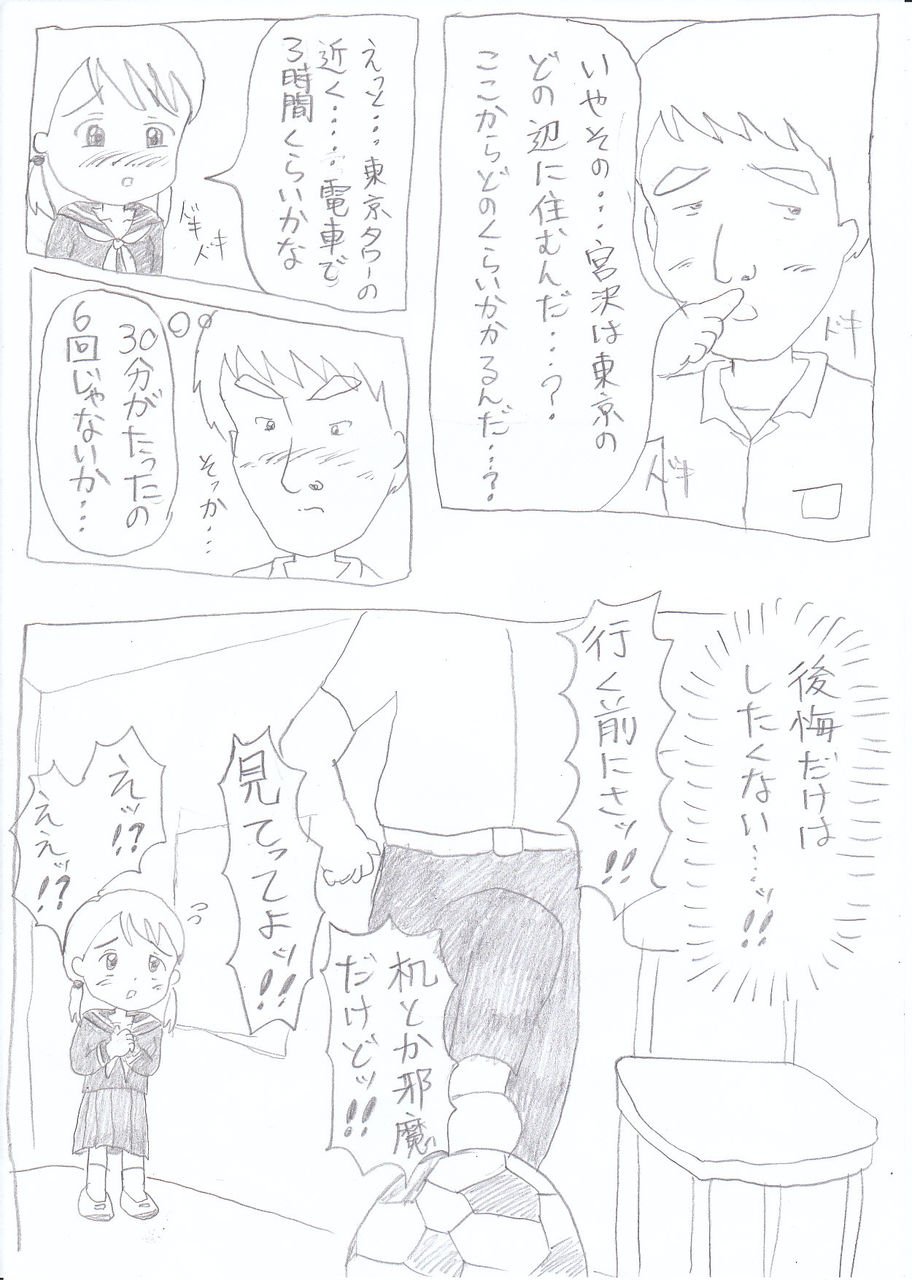 いやその・・・宮沢は東京の
どの辺に住むんだ・・・？
ここからどのくらいかかるんだ・・・？
ドキ
ドキ
えっと・・・東京タワーの
近く・・・・電車で
3時間くらいかな
ドキ
ドキ
30分がたったの
6回じゃないか・・・
そっか・・・
後悔だけは
したくない・・・・ッ!!
行く前にさッ!!
見てってよッ!!
机とか邪魔
だけどッ!!
えッ!?
ええッ!?